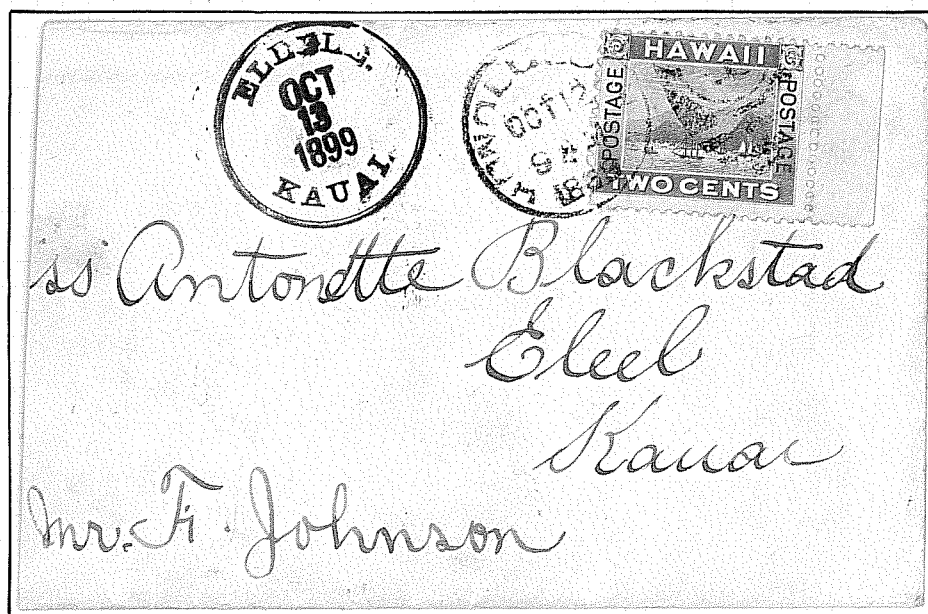 ELEELE.
OCT
13
1899
KAUAI.
HONOLULU
OCT 12
9
189
HAWAII
POSTAGE
POSTAGE
2
2
TWO CENTS
ss Antonette Blackstad
Eleel
Kauai
Mr. F. Johnson